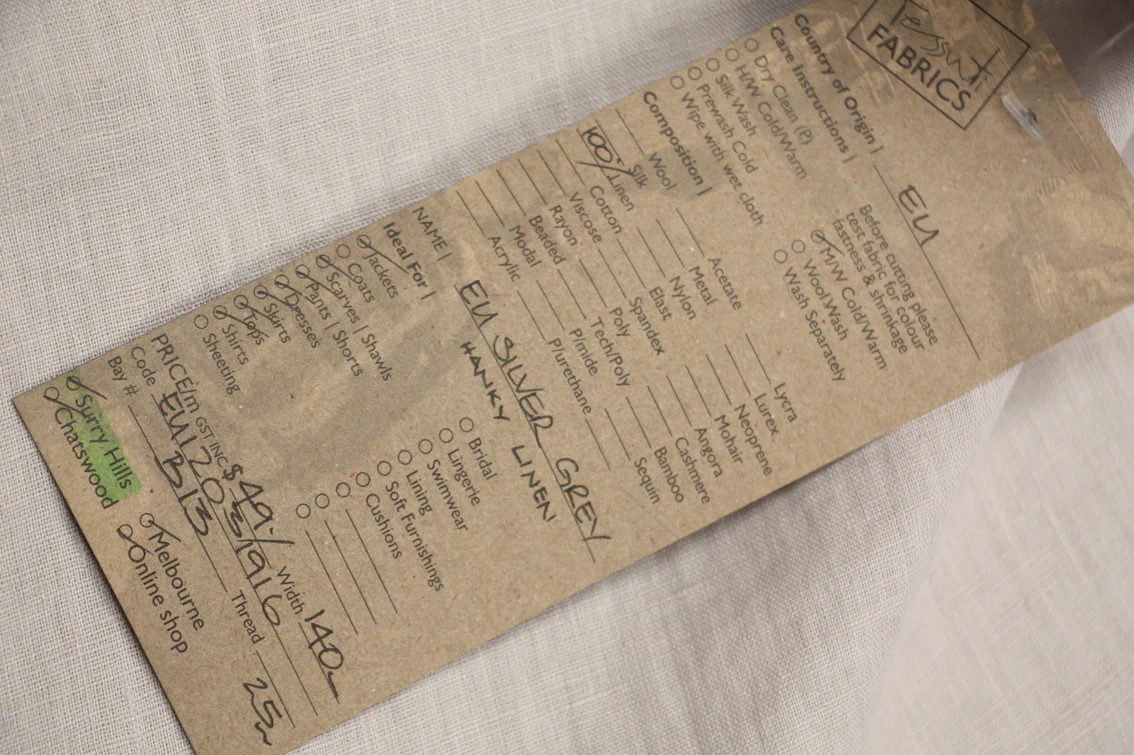 Tessuti
FABRICS
Country of Origin | EU
Care Instructions |
Dry Clean (P)
H/W Cold/Warm
Silk Wash
Prewash Cold
Wipe with wet cloth
Before cutting please
test fabric for colour
fastness & shrinkage
M/W Cold/Warm
Wool Wash
Wash Separately
Composition |
Wool
Silk
100% Linen
Cotton
Viscose
Rayon
Beaded
Modal
Acrylic
Acetate
Metal
Nylon
Elast
Spandex
Poly
Tech/Poly
P/mide
P/urethane
Lycra
Lurex
Neoprene
Mohair
Angora
Cashmere
Bamboo
Sequin
NAME | EU SILVER GREY
HANKY LINEN
Ideal For |
Jackets
Coats
Scarves | Shawls
Pants | Shorts
Dresses
Skirts
Tops
Shirts
Sheeting
Bridal
Lingerie
Swimwear
Lining
Soft Furnishings
Cushions
PRICE/m GST INC $49.- Width 140
Code EU1203/916
Bay # B13 Thread
Surry Hills
Chatswood
Melbourne
Online shop